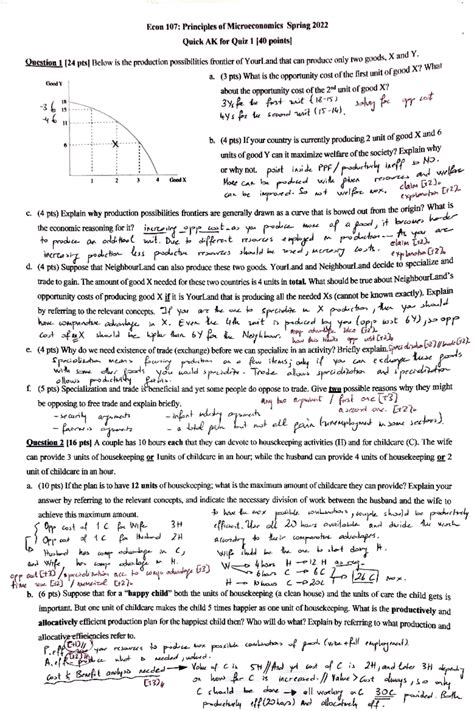 Econ 107: Principles of Microeconomics Spring 2022
Quick AK for Quiz 1 [40 points]
Question 1 [24 pts] Below is the production possibilities frontier of YourLand that can produce only two goods, X and Y.
a. (3 pts) What is the opportunity cost of the first unit of good X? What
about the opportunity cost of the 2nd unit of good X?
3Ys for the first unit (18-15)
4Ys for the second unit (15-11).
Good Y
-3
-4
18
15
11
6
X
1 2 3 4 Good X
b. (4 pts) If your country is currently producing 2 unit of good X and 6
units of good Y can it maximize welfare of the society? Explain why
or why not. point inside PPF / productively ineff so NO.
More can be produced with given resources and welfare
can be improved. So not welfare max. claim [+2].
explanation [+2].
c. (4 pts) Explain why production possibilities frontiers are generally drawn as a curve that is bowed out from the origin? What is
the economic reasoning for it? increasing opp cost as you produce more of a good, it becomes harder
to produce an additional unit. Due to different resources employed in production --- As you are
increasing production less productive resources should be used, increasing costs. claim [+2].
explanation [+2].
d. (4 pts) Suppose that NeighbourLand can also produce these two goods. YourLand and NeighbourLand decide to specialize and
trade to gain. The amount of good X needed for these two countries is 4 units in total. What should be true about NeighbourLand's
opportunity costs of producing good X if it is YourLand that is producing all the needed Xs (cannot be known exactly). Explain
by referring to the relevant concepts. If you are the one to specialize in X production, then you should
have comparative advantage in X. Even the 4th unit is produced by you (opp cost 6Y), so opp
cost of X should be higher than 6Y for the Neighbour.
e. (4 pts) Why do we need existence of trade (exchange) before we can specialize in an activity? Briefly explain.
Specialization means focusing production on a few items; only if you can exchange these goods
with some other goods you would specialize. Trade allows specialization and specialization
allows productivity gains.
f. (5 pts) Specialization and trade is beneficial and yet some people do oppose to trade. Give two possible reasons why they might
be opposing to free trade and explain briefly. any two argument / first one [+3]
second one [+2].
- security arguments - infant industry arguments
- fairness arguments - a total gain but not all gain (unemployment in some sectors).
Question 2 [16 pts] A couple has 10 hours each that they can devote to housekeeping activities (H) and for childcare (C). The wife
can provide 3 units of housekeeping or 1units of childcare in an hour; while the husband can provide 4 units of housekeeping or 2
unit of childcare in an hour.
a. (10 pts) If the plan is to have 12 units of housekeeping; what is the maximum amount of childcare they can provide? Explain your
answer by referring to the relevant concepts, and indicate the necessary division of work between the husband and the wife to
achieve this maximum amount. to have the max possible combinations, couple should be productively
efficient. Use all 20 hours available and divide the work
according to their comparative advantages.
Wife should be the one to start doing H.
Opp cost of 1 C for Wife 3H
Opp cost of 1 C for Husband 2H
Husband has comp advantage in C,
Wife, has comp advantage in H.
W → 4 hours H → 12 H as req.
→ 6 hours C → 6C
H → 10 hours C → 20C
26 C max.
b. (6 pts) Suppose that for a "happy child" both the units of housekeeping (a clean house) and the units of care the child gets is
important. But one unit of childcare makes the child 5 times happier as one unit of housekeeping. What is the productively and
allocatively efficient production plan for the happiest child then? Who will do what? Explain by referring to what production and
allocative efficiencies refer to.
P.eff your resources to produce max possible combination of goods (use + full employment).
A.eff → produce what is needed, valued.
Cost & Benefit analysis needed → Value of C is 5H // And yet cost of C is 2H, and later 3H depending
on how far C is increased. // Value > Cost always, so only
C should be done → all working on C 30C provided. Both
productively eff (20 hours) And allocatively eff.